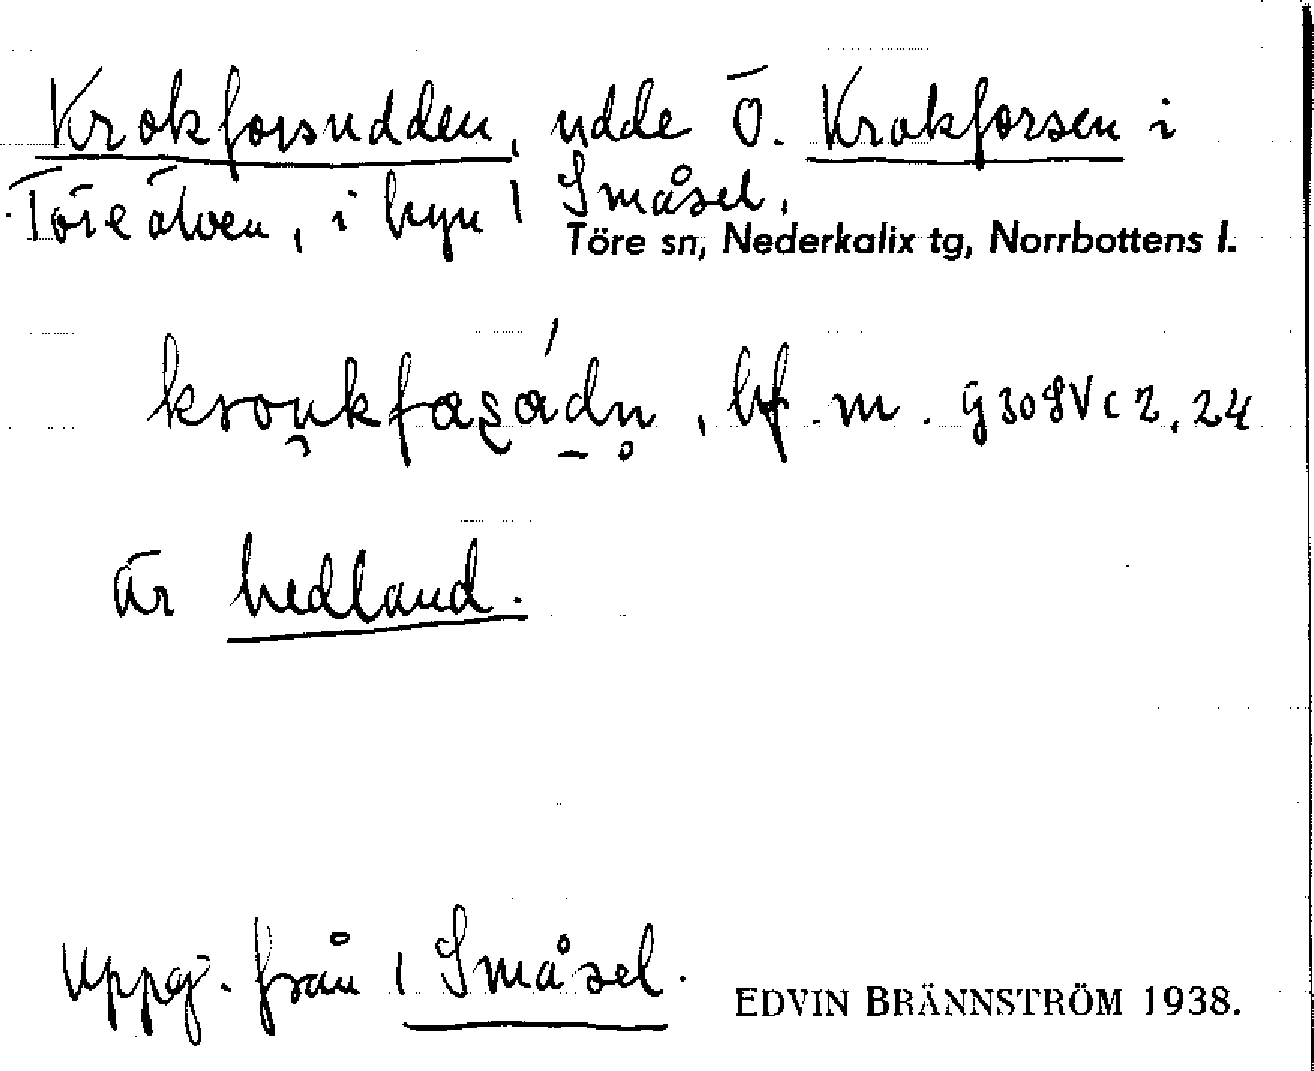 Krokforsudden, udde Ö. Krokforsen i
Töre älven, i byn 1 Småsel,
Töre sn, Nederkalix tg, Norrbottens l.
bf. m.
är hedland.
Uppg. från 1 Småsel.
EDVIN BRÄNNSTRÖM 1938.